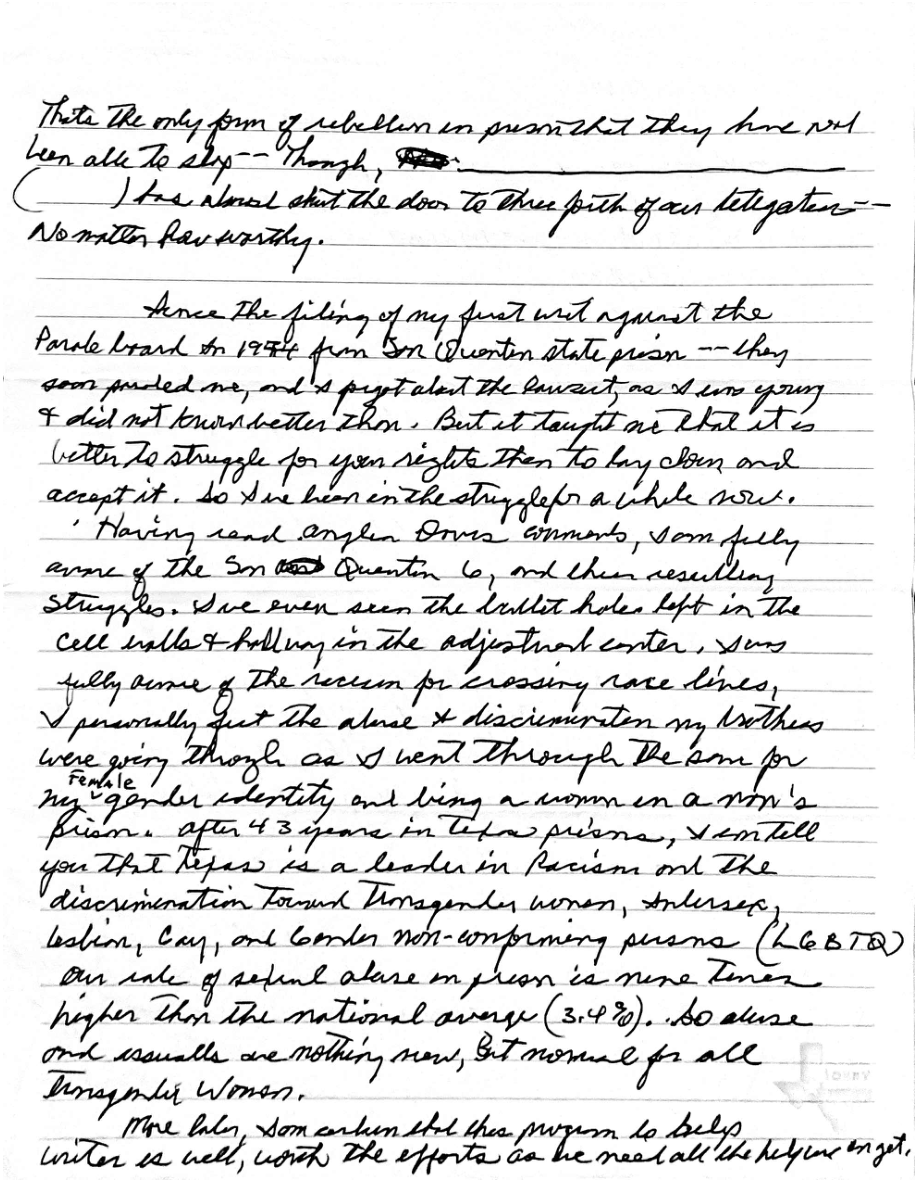 Thats the only form of rebellion in prison that they have not
been able to stop-- Though,
(      ) has almost shut the door to three forth of our letigation--
No matter how worthy.
Since the filing of my first writ against the
Parole board In 1974 from San Quentin state prison -- they
soon paroled me, and I forgot about the lawsuit, as I was young
& did not know better then. But it taught me that it is
better to struggle for your rights then to lay down and
accept it. So I've been in the struggle for a while now.
Having read Angela Davis comments, I am fully
aware of the San Quentin 6, and their resulting
struggles. I've even seen the bullet holes left in the
cell walls & hallway in the adjustment center. I was
fully aware of the racism for crossing race lines,
I personally felt the abuse & discrimination my brothers
were going through as I went through the same for
my Female gender identity and being a woman in a man's
prison. After 43 years in Texas prisons, I can tell
you that Texas is a leader in Racism and the
discrimination Toward Transgender women, Intersex,
lesbian, Gay, and Gender non-conforming persons (LGBTQ)
Our rate of sexual abuse in prison is nine times
higher than the national average (3.4%). So abuse
and assaults are nothing new, But normal for all
Transgender Women.
More later, I am certain that this program to help
writer is well, worth the efforts as we need all the help we can get.